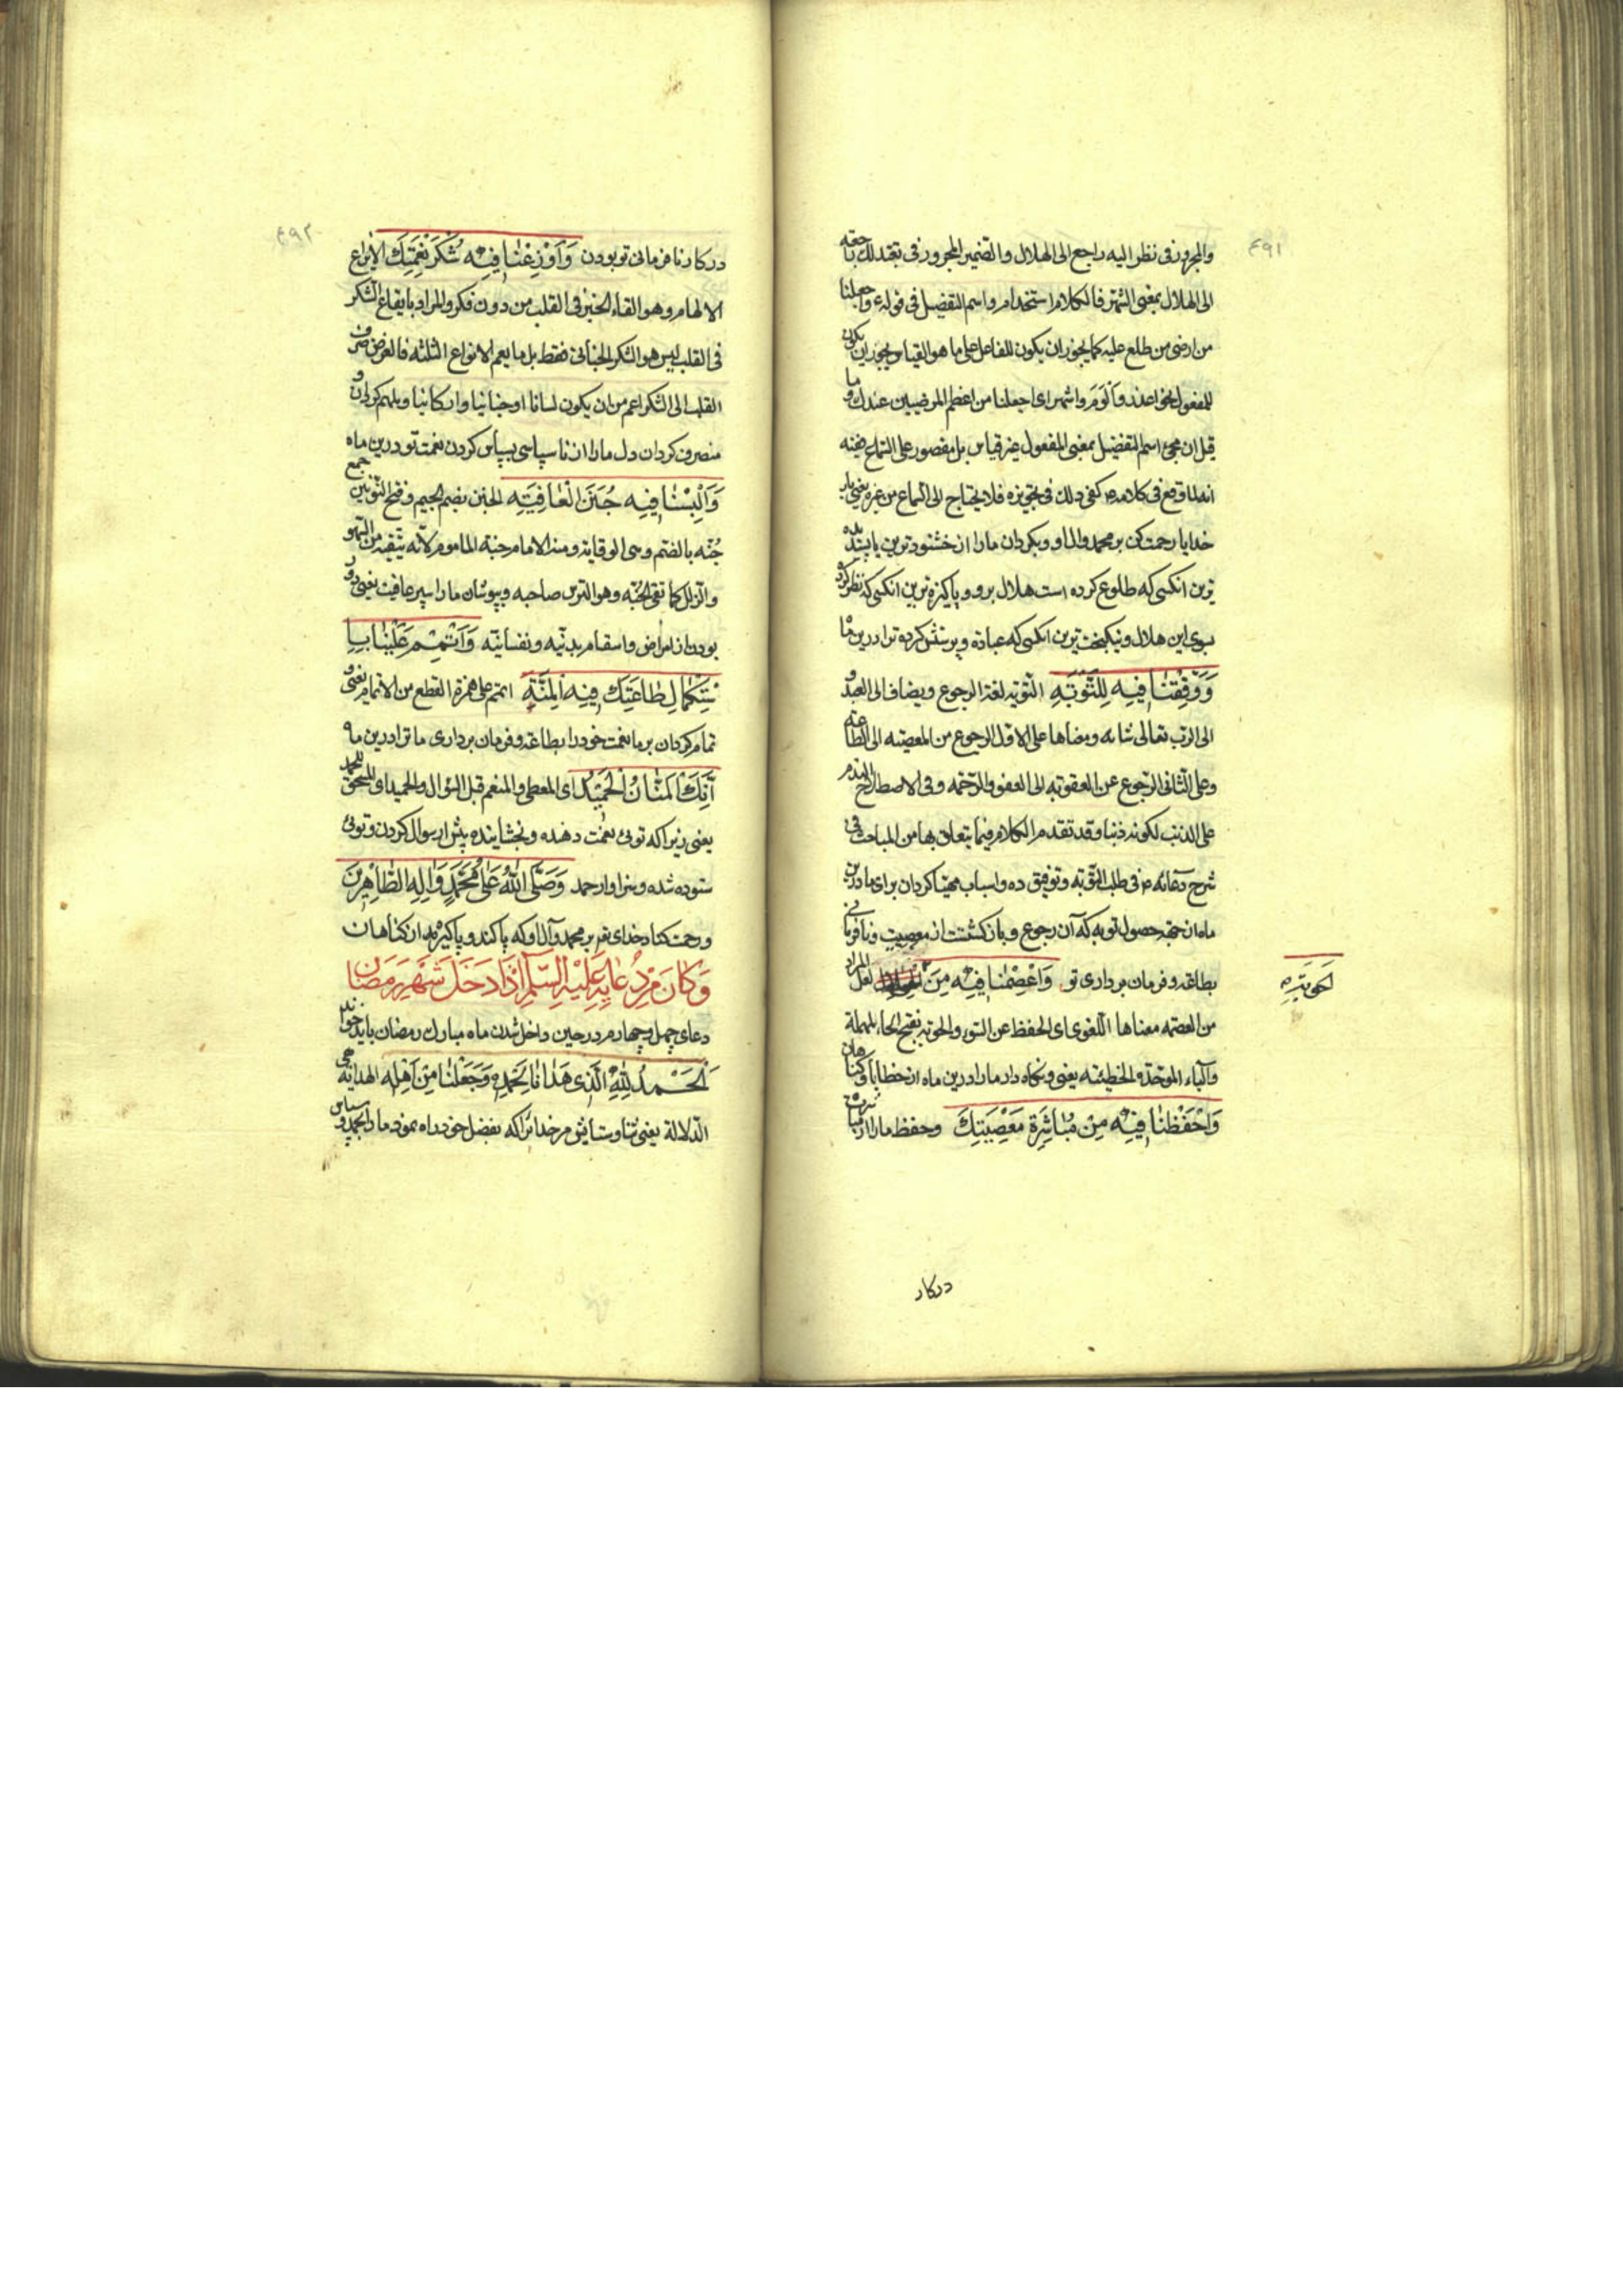 ٤٩١
والمجرور فی نظر الیه راجع الی الهلال والضمیر المجرور فی تعبد لك
الی الهلال بمعنی الشهر فالكلام استخدام واسم التفضیل فی قوله واجعلنا
من ارضی من طلع علیه كما یجوز ان یكون للفاعل علی ما هو القیاس یجوز ان یكون
للمفعول نحو اعذر والوم واشهر ای اجعلنا من اعظم المرضیین عندك وما
قیل ان مجیء اسم التفضیل بمعنی المفعول غیر قیاس بل مقصور علی السماع ففیه
انه لما وقع فی كلامه كفی ذلك فی تجویزه فلا یحتاج الی السماع من غیره یعنی بار
خدایا رحمت كن بر محمد وال او وبكردان ما را از خشنود ترین یا پسندیده
ترین انكسی كه طلوع كرده است هلال برو و پاكیزه ترین انكسی كه نظر كرد
بسوی این هلال ونیكبخت ترین انكسی كه عبادة و پرستش كرده ترا درین ماه
وَوَفِّقْنٰا فِیهِ لِلتَّوْبَةِ التوبة لغة الرجوع ویضاف الی العبد و
الی الرب تعالی شانه ومعناها علی الاول الرجوع من المعصیة الی الطاعة
وعلی الثانی الرجوع عن العقوبة الی العفو والرحمة وفی الاصطلاح الندم
علی الذنب لكونه ذنبا وقد تقدم الكلام فیما یتعلق بها من المباحث فی
شرح دعائه فی طلب التوبة وتوفیق ده واسباب مهیا كردان برای ما درین
ماه از جهة حصول توبه كه آن رجوع و باز كشتنت از معصیت و نافرمانی
بطاعة وفرمان برداری تو وَاعْصِمْنٰا فِیهِ مِنَ لعل المراد
الْحَوْبَةِ
من العصمة معناها اللغوی ای الحفظ عن السوء والحوبة بفتح الحاء المهملة
والباء الموحدة الخطیئة یعنی ونكاه دار ما را درین ماه از خطایا وكناهان
وَاحْفَظْنٰا فِیهِ مِنْ مُبٰاشَرَةِ مَعْصِیَتِكَ وحفظ ما را از مباشرت
در كار
٤٩٢
در كار نافرمانی تو بودن وَاَوْزِعْنٰا فِیهِ شُكْرَ نِعْمَتِكَ الایزاع
الالهام وهو القاء الخیر فی القلب من دون فكر والمراد بایقاع الشكر
فی القلب لیس هو الشكر الجنانی فقط بل ما یعم الانواع الثلثة فالغرض صرف
القلب الی الشكر اعم من ان یكون لسانا او جنانیا واركانیا و ملهم كردان و
منصرف كردان دل ما را از ناسپاسی بسپاس كردن نعمت تو درین ماه
وَاَلْبِسْنٰا فِیهِ جُنَنَ الْعٰافِیَةِ الجنن بضم الجیم وفتح النونین جمع
جُنّه بالضم وهی الوقایة ومنه الامام جنة الماموم لانه یقیه من السهو
والزلل كما تقی الجنّة وهو الترس صاحبه و بپوشان ما را سپر عافیت یعنی دور
بودن از امراض واسقام بدنیه ونفسانیه وَاَتْمِمْ عَلَیْنٰا بِاسْ
تِكْمٰالِ طٰاعَتِكَ فِیهِ الْمِنَّةَ اتمم علی همزة القطع من الاتمام یعنی و
تمام كردان بر ما نعمت خود را بطاعة و فرمان برداری ما ترا درین ماه
اِنَّكَ الْمَنّٰانُ الْحَمِیْدُ ای المعطی والمنعم قبل السؤال والحمید ای المستحق للحمد
یعنی زیرا كه تویی نعمت دهنده و بخشاینده پیش از سوال كردن و تویی
ستوده شده و سزاوار حمد وَصَلَّی اللّٰهُ عَلیٰ مُحَمَّدٍ وَاٰلِهِ الطّٰاهِرِینَ
و رحمت كناد خدای تم بر محمد وآل او كه پاكند و پاكیزه اند از كناهان
وَكٰانَ مِنْ دُعٰائِهِ عَلَیْهِ السَّلٰم اِذٰا دَخَلَ شَهْرُ رَمَضٰانَ
دعای چهل و چهارم در حین داخل شدن ماه مبارك رمضان باید خواند
اَلْحَمْدُ لِلّٰهِ الَّذِی هَدٰانٰا لِحَمْدِهِ وَجَعَلَنٰا مِنْ اَهْلِهِ الهدایة هی
الدلالة یعنی ثنا وستایش مر خدائرا كه بفضل خود راه نمود ما را بحمد و سپاس